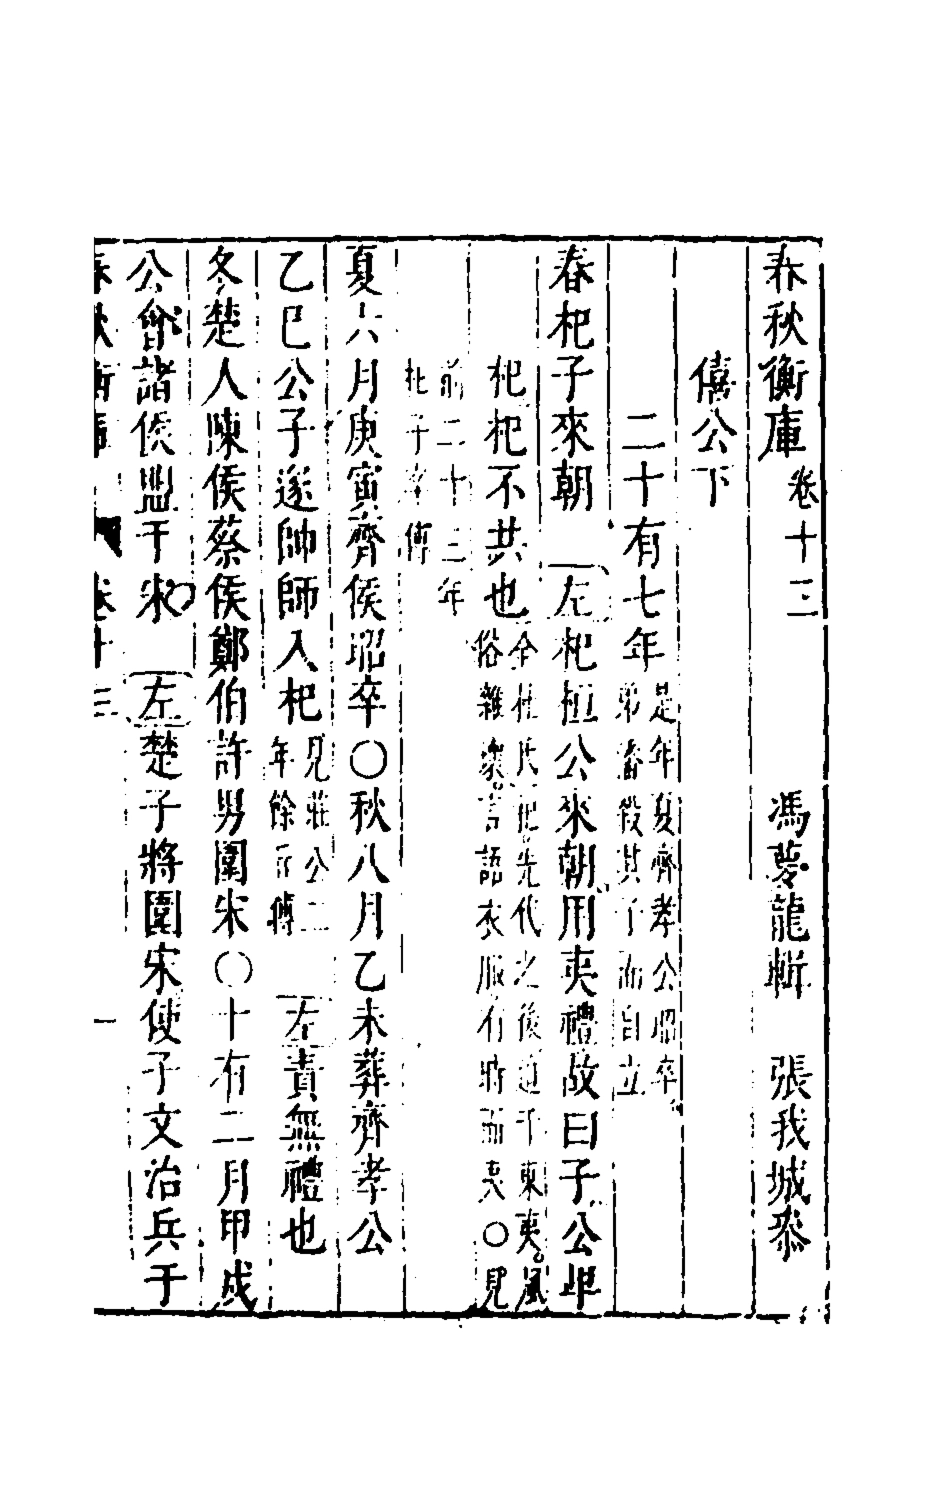 春秋衡庫卷十三 馮夢龍輯 張我城叅
僖公下
二十有七年是年夏齊孝公昭卒弟潘殺其子而自立
春杞子來朝 左杞桓公來朝用夷禮故曰子公卑
杞杞不共也全杜氏杞先代之後迫于東夷風俗雜壞言語衣服有時而夷〇見
前二十三年杞子卒傳
夏六月庚寅齊侯昭卒〇秋八月乙未葬齊孝公
乙巳公子遂帥師入杞見莊公二年餘丘傳 左責無禮也
冬楚人陳侯蔡侯鄭伯許男圍宋〇十有二月甲戌
公會諸侯盟于宋 左楚子將圍宋使子文治兵于
春秋衡庫 卷十三 一